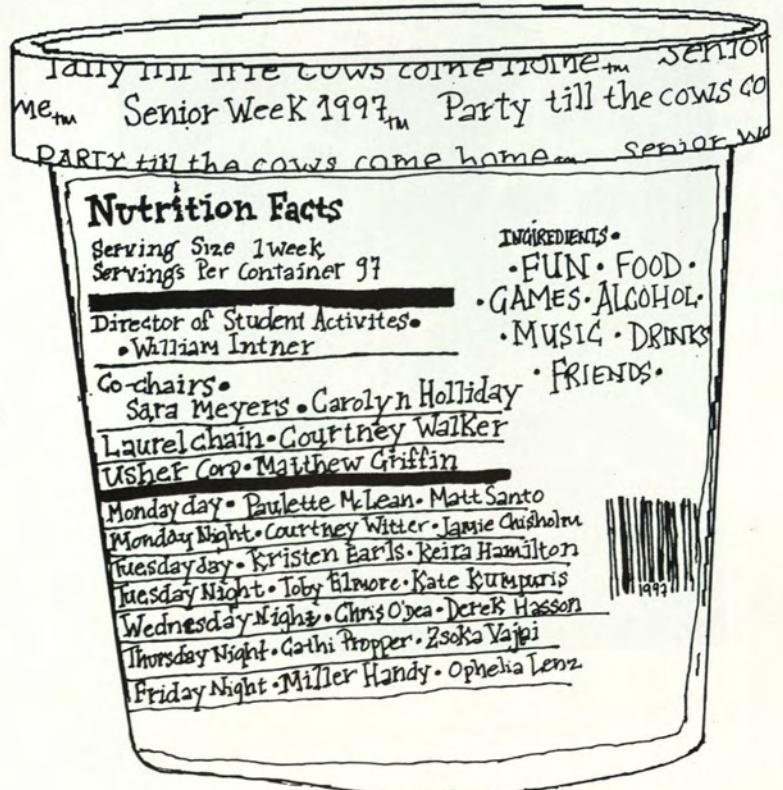 Party till the cows come home™ Senior
me™ Senior Week 1997™ Party till the cows co
PARTY till the cows come home™ Senior We
Nutrition Facts
Serving Size 1 week
Servings Per Container 97
Director of Student Activites•
• William Intner
Co-chairs•
Sara Meyers • Carolyn Holliday
Laurel chain • Courtney Walker
Usher Corp • Matthew Griffin
Monday day • Paulette McLean • Matt Santo
Monday Night • Courtney Witter • Jamie Chisholm
Tuesday day • Kristen Earls • Keira Hamilton
Tuesday Night • Toby Elmore • Kate Kumpuris
Wednesday Night • Chris O'Dea • Derek Hasson
Thursday Night • Cathi Propper • Zsoka Vajpi
Friday Night • Miller Handy • Ophelia Lenz
INGREDIENTS•
• FUN • FOOD •
• GAMES • ALCOHOL •
• MUSIC • DRINKS
• FRIENDS •
1997